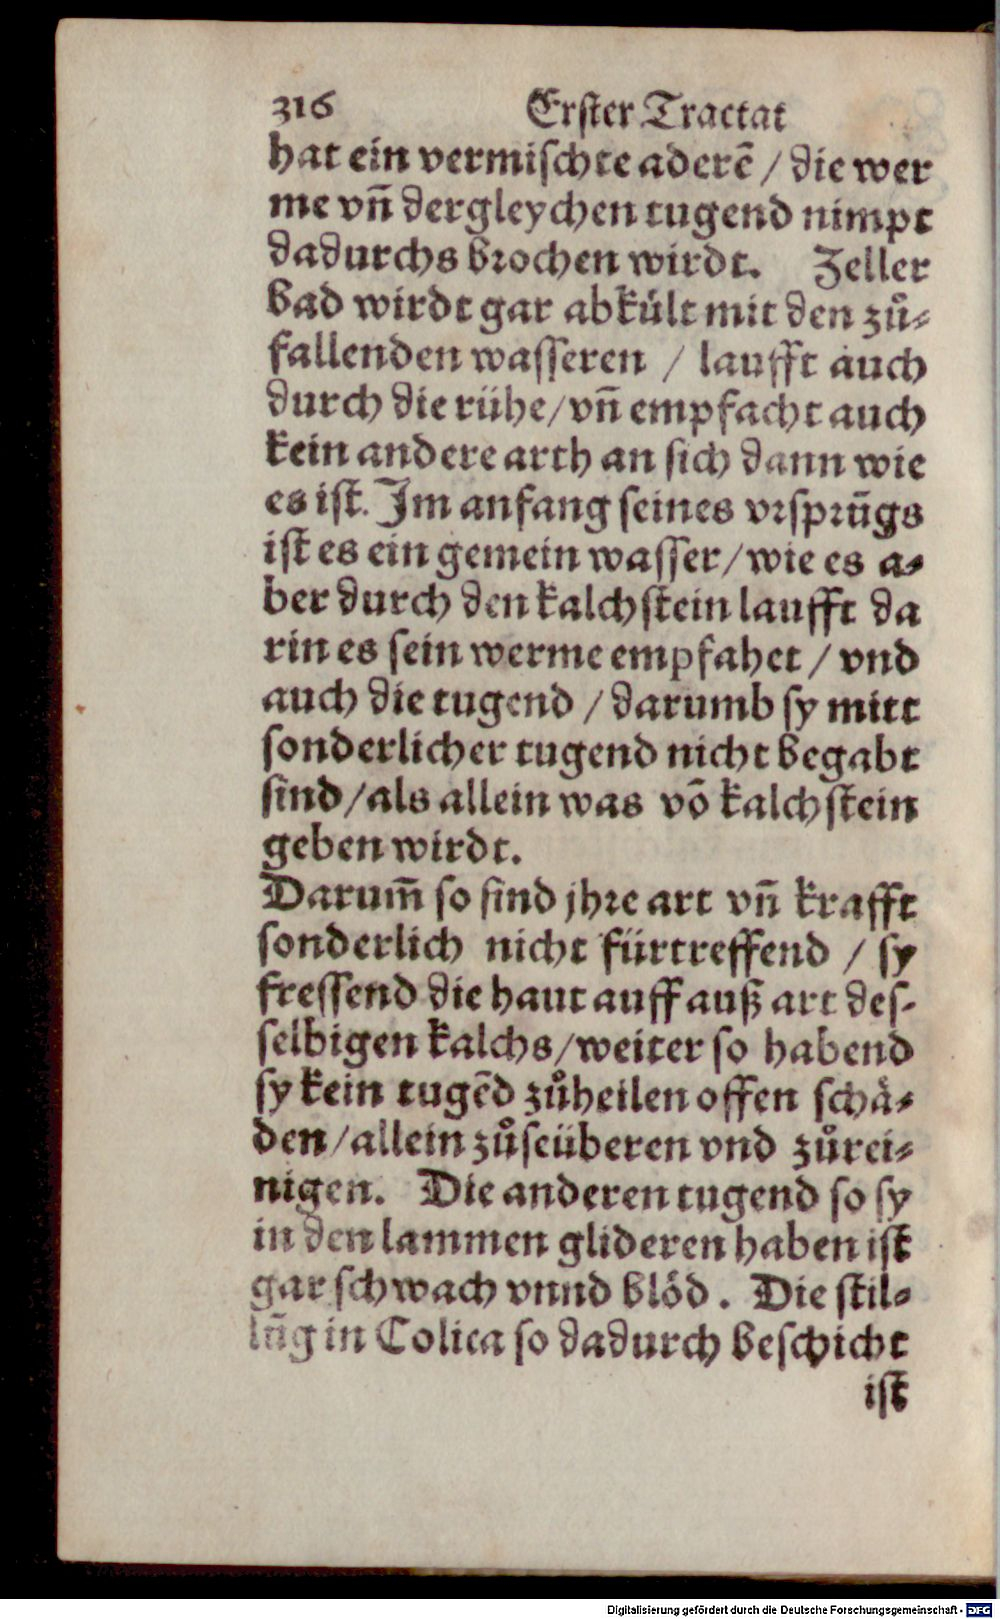 316 Erster Tractat
hat ein vermischte aderē / die wer
me vn̄ dergleychen tugend nimpt
dadurchs brochen wirdt. Zeller
bad wirdt gar abkuͤlt mit den zuͦ⸗
fallenden wasseren / laufft auch
durch die ruͤhe/vn̄ empfacht auch
kein andere arth an sich dann wie
es ist. Im anfang seines vrsprūgs
ist es ein gemein wasser/wie es a⸗
ber durch den kalchstein laufft da
rin es sein werme empfahet / vnd
auch die tugend / darumb sy mitt
sonderlicher tugend nicht begabt
sind/als allein was vō kalchstein
geben wirdt.
Darum̄ so sind jhre art vn̄ krafft
sonderlich nicht fürtreffend / sy
fressend die haut auff auß art des-
selbigen kalchs/weiter so habend
sy kein tugēd zuͦheilen offen schaͤ⸗
den/allein zuͦseüberen vnd zuͦrei⸗
nigen. Die anderen tugend so sy
in den lammen glideren haben ist
gar schwach vnnd bloͤd. Die stil⸗
lūg in Colica so dadurch beschicht
ist
Digitalisierung gefördert durch die Deutsche Forschungsgemeinschaft - DFG